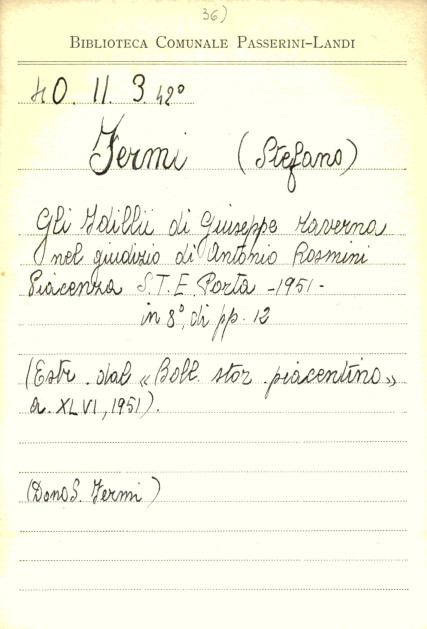 36)
BIBLIOTECA COMUNALE PASSERINI-LANDI
40. II. 3. 42°
Fermi (Stefano)
Gli Idillii di Giuseppe Taverna
nel giudizio di Antonio Rosmini
Piacenza S.T.E. Porta -1951-
in 8°, di pp. 12
(Estr. dal «Boll. stor. piacentino»
a. XLVI, 1951).
(Dono S. Fermi)